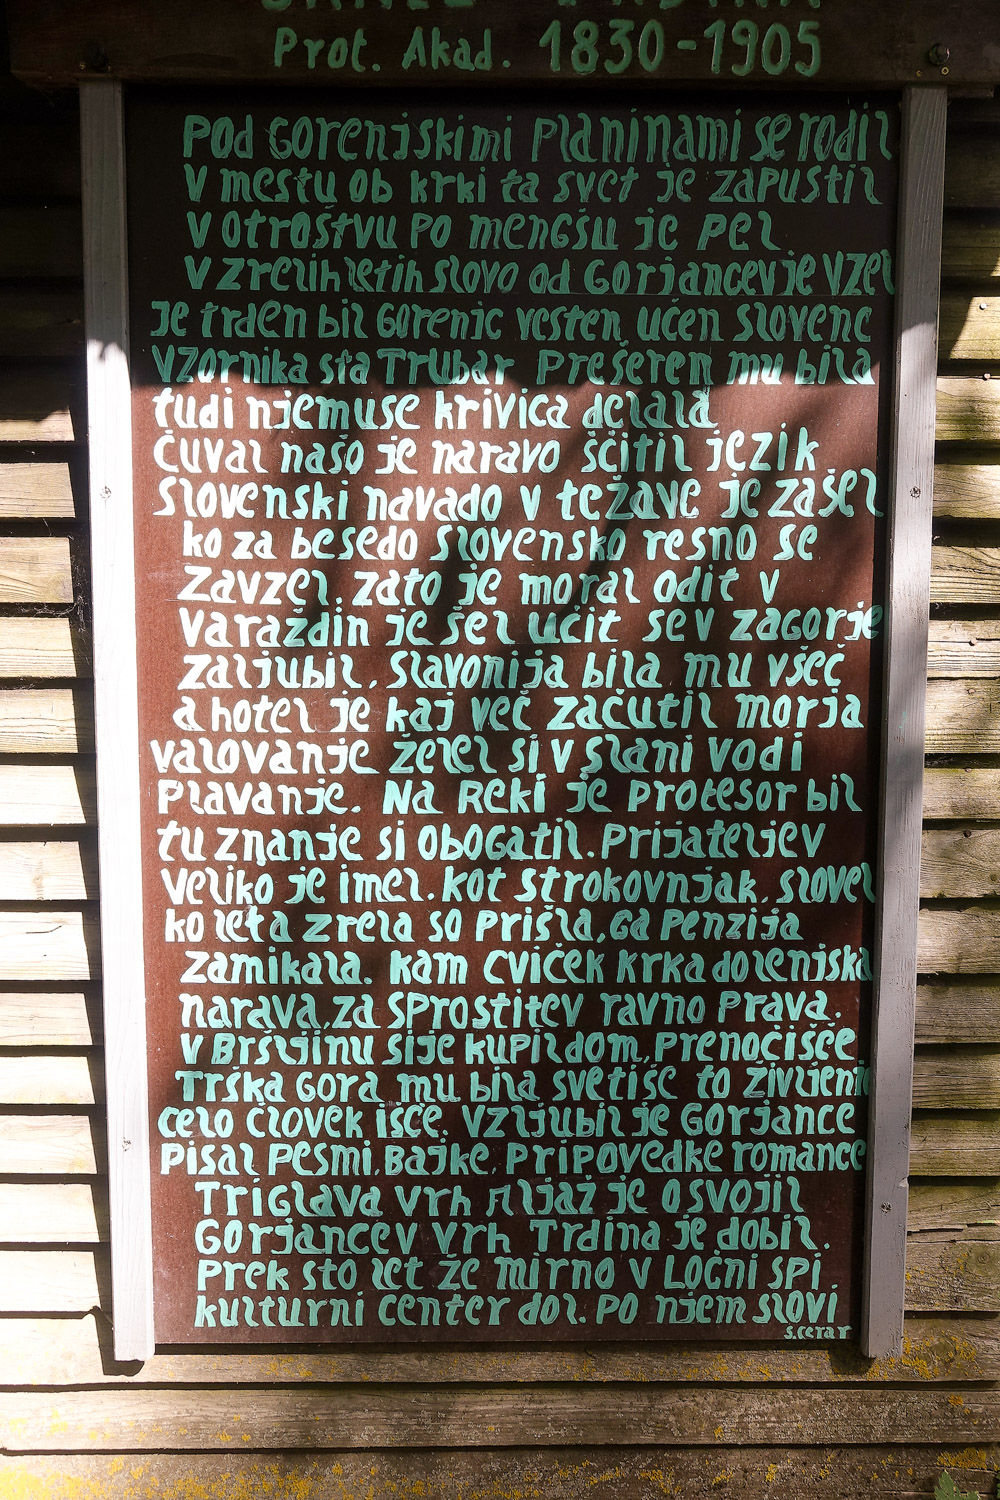 Prof. Akad. 1830-1905
Pod Gorenjskimi Planinami se rodil
V mestu ob krki ta svet je zapustil
V otroštvu po mengšu je pel
V zrelih letih slovo od Gorjancev je vzel
Je trden bil Gorenjc vesten, učen slovenc
Vzornika sta Trubar Prešeren mu bila
tudi njemu se krivica delala
Čuval našo je naravo ščitil jezik
Slovenski navado v težave je zašel
ko za besedo slovensko resno se
Zavzel, zato je moral odit v
Varaždin je šel učit se v zagorje
zaljubil, Slavonija bila mu všeč
a hotel je kaj več začutil morja
valovanje želel si v slani vodi
Plavanje. Na Reki je profesor bil
tu znanje si obogatil. Prijateljev
Veliko je imel. Kot strokovnjak, slovel
ko leta zrela so prišla, ga penzija
zamikala. Kam Cviček Krka dolenjska
narava, za sprostitev ravno prava.
V Bršljinu si je kupil dom, prenočišče
Trška Gora mu bila svetišč to življenje
celo človek išče. Vzljubil je Gorjance
Pisal Pesmi, Bajke, Pripovedke romance
Triglava vrh Aljaž je osvojil
Gorjancev vrh Trdina je dobil.
Prek sto let že mirno v Ločni spi.
kulturni center dol. po njem slovi
S. Cerar